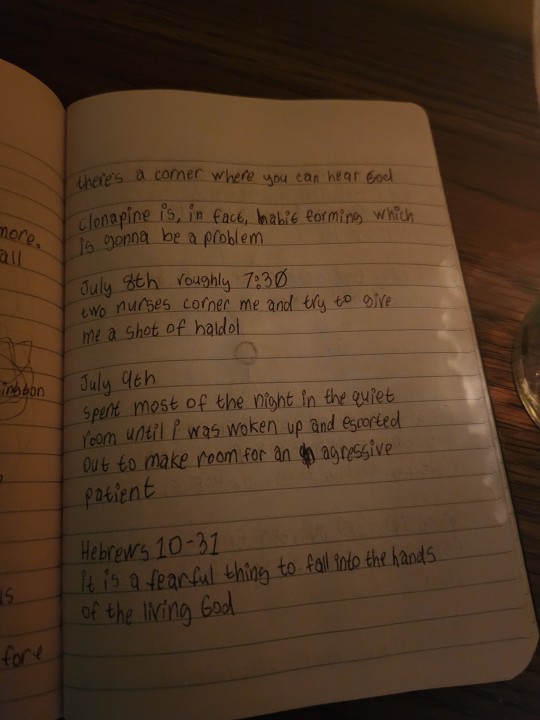 more.
all
ington
fore
there's a corner where you can hear God
clonapine is, in fact, habit forming which
is gonna be a problem
July 8th roughly 7:30
two nurses corner me and try to give
me a shot of haldol
July 9th
spent most of the night in the quiet
room until i was woken up and escorted
out to make room for an agressive
patient
Hebrews 10-31
it is a fearful thing to fall into the hands
of the living God